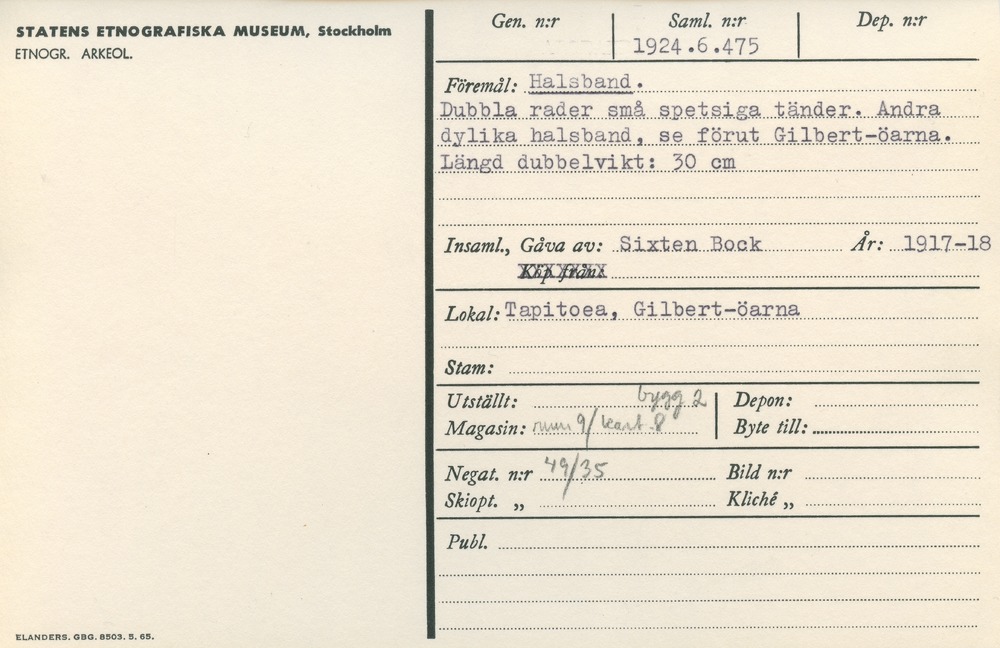 STATENS ETNOGRAFISKA MUSEUM, Stockholm
ETNOGR. ARKEOL.
Gen. n:r
Saml. n:r
1924.6.475
Dep. n:r
Föremål: Halsband.
Dubbla rader små spetsiga tänder. Andra
dylika halsband, se förut Gilbert-öarna.
Längd dubbelvikt: 30 cm
Insaml., Gåva av: Sixten Bock År: 1917-18
Köp från:
Lokal: Tapitoea, Gilbert-öarna
Stam:
Utställt: bygg 2
Magasin: rum 9/kart 8
Depon:
Byte till:
Negat. n:r 49/35
Skiopt. „
Bild n:r
Kliché „
Publ.
ELANDERS. GBG. 8503. 5. 65.